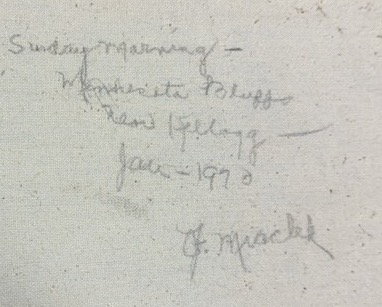 Sunday Morning —
Minnesota Bluffs
Near Kellogg —
Jan - 1970